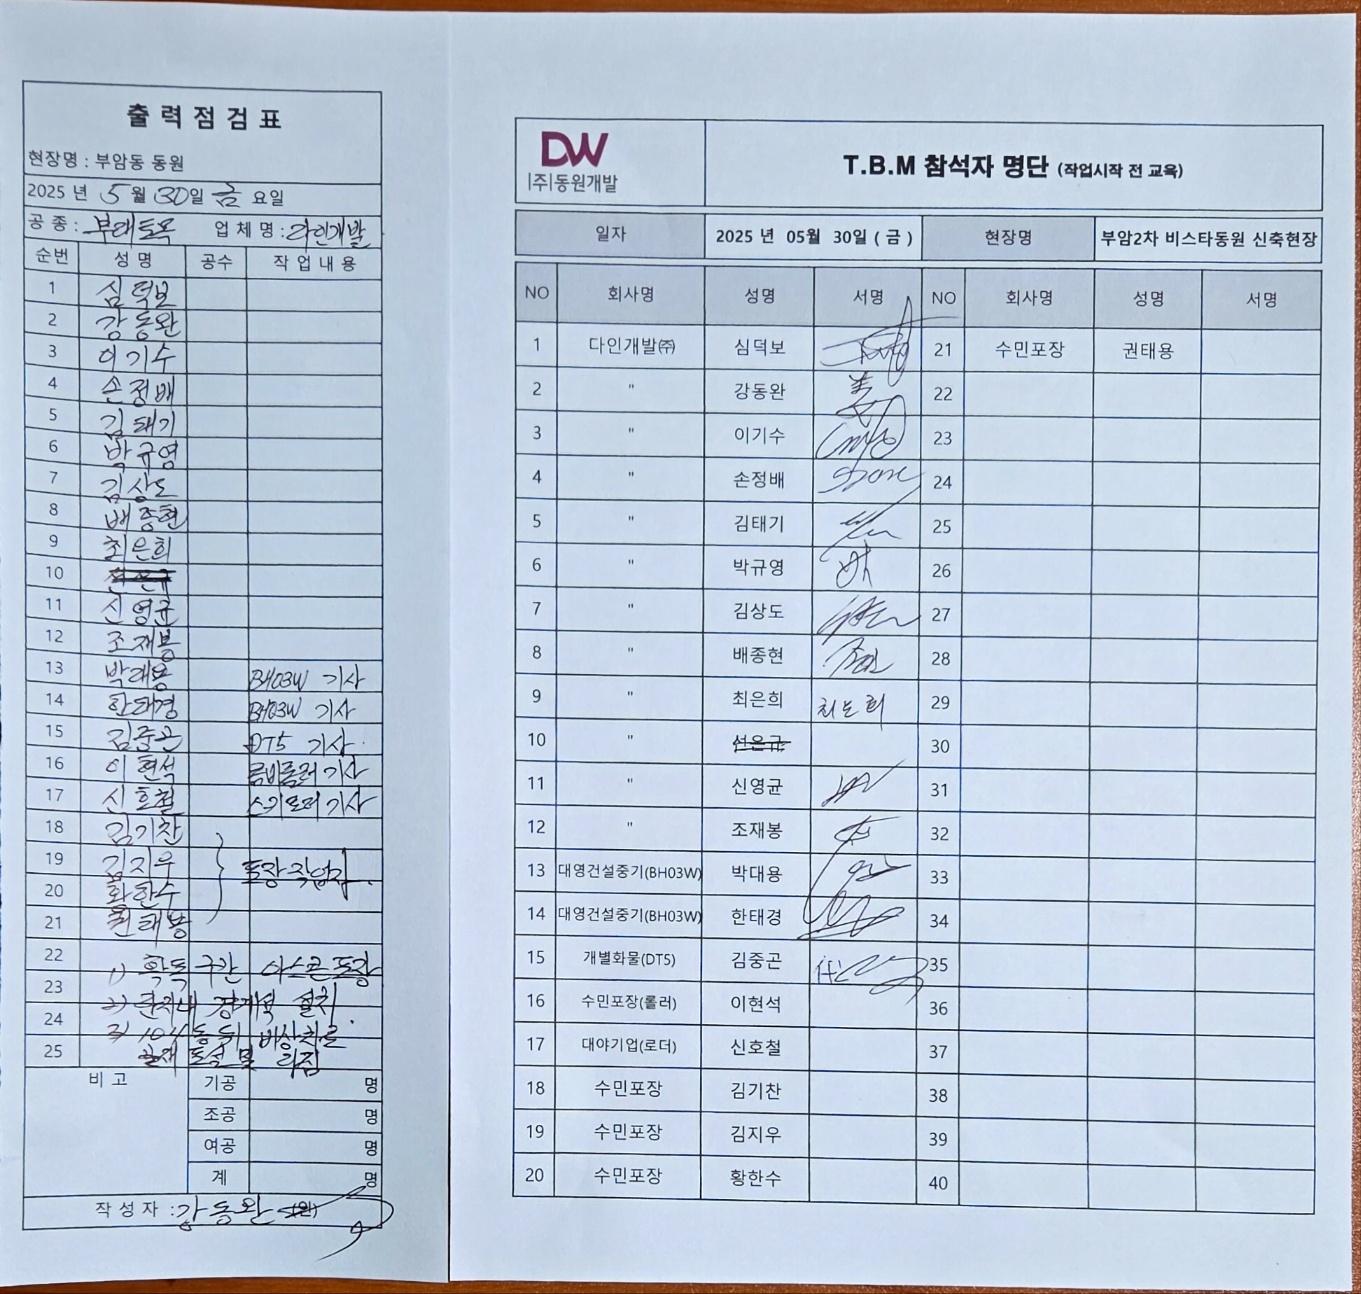 출 력 점 검 표
현장명 : 부암동 동원
2025 년 5 월 30 일 금 요일
공 종 : 부대토목 업 체 명 : 다인개발
순번 성 명 공수 작 업 내 용
1 심덕보
2 강동완
3 이기수
4 손정배
5 김태기
6 박규영
7 김상도
8 배종현
9 최은희
10 선은규
11 신영균
12 조재봉
13 박대용 BH03W 기사
14 한태경 BH03W 기사
15 김중곤 DT5 기사
16 이현석 기사
17 신호철 기사
18 김기찬
19 김지우 포장 작업
20 황한수
21 권태용
22 1) 구간 아스콘 포장
23 2) 단지내 경계석 설치
24 3) 104동 뒤 비상차로
25 포설 및 다짐
비 고 기공 명
조공 명
여공 명
계 명
작 성 자 : 강동완 (인)
DW
(주)동원개발
T.B.M 참석자 명단 (작업시작 전 교육)
일자 2025 년 05월 30일 ( 금 ) 현장명 부암2차 비스타동원 신축현장
NO 회사명 성명 서명 NO 회사명 성명 서명
1 다인개발㈜ 심덕보 21 수민포장 권태용
2 " 강동완 22
3 " 이기수 23
4 " 손정배 24
5 " 김태기 25
6 " 박규영 26
7 " 김상도 27
8 " 배종현 28
9 " 최은희 최은희 29
10 " 선은규 30
11 " 신영균 31
12 " 조재봉 32
13 대영건설중기(BH03W) 박대용 33
14 대영건설중기(BH03W) 한태경 34
15 개별화물(DT5) 김중곤 35
16 수민포장(롤러) 이현석 36
17 대야기업(로더) 신호철 37
18 수민포장 김기찬 38
19 수민포장 김지우 39
20 수민포장 황한수 40